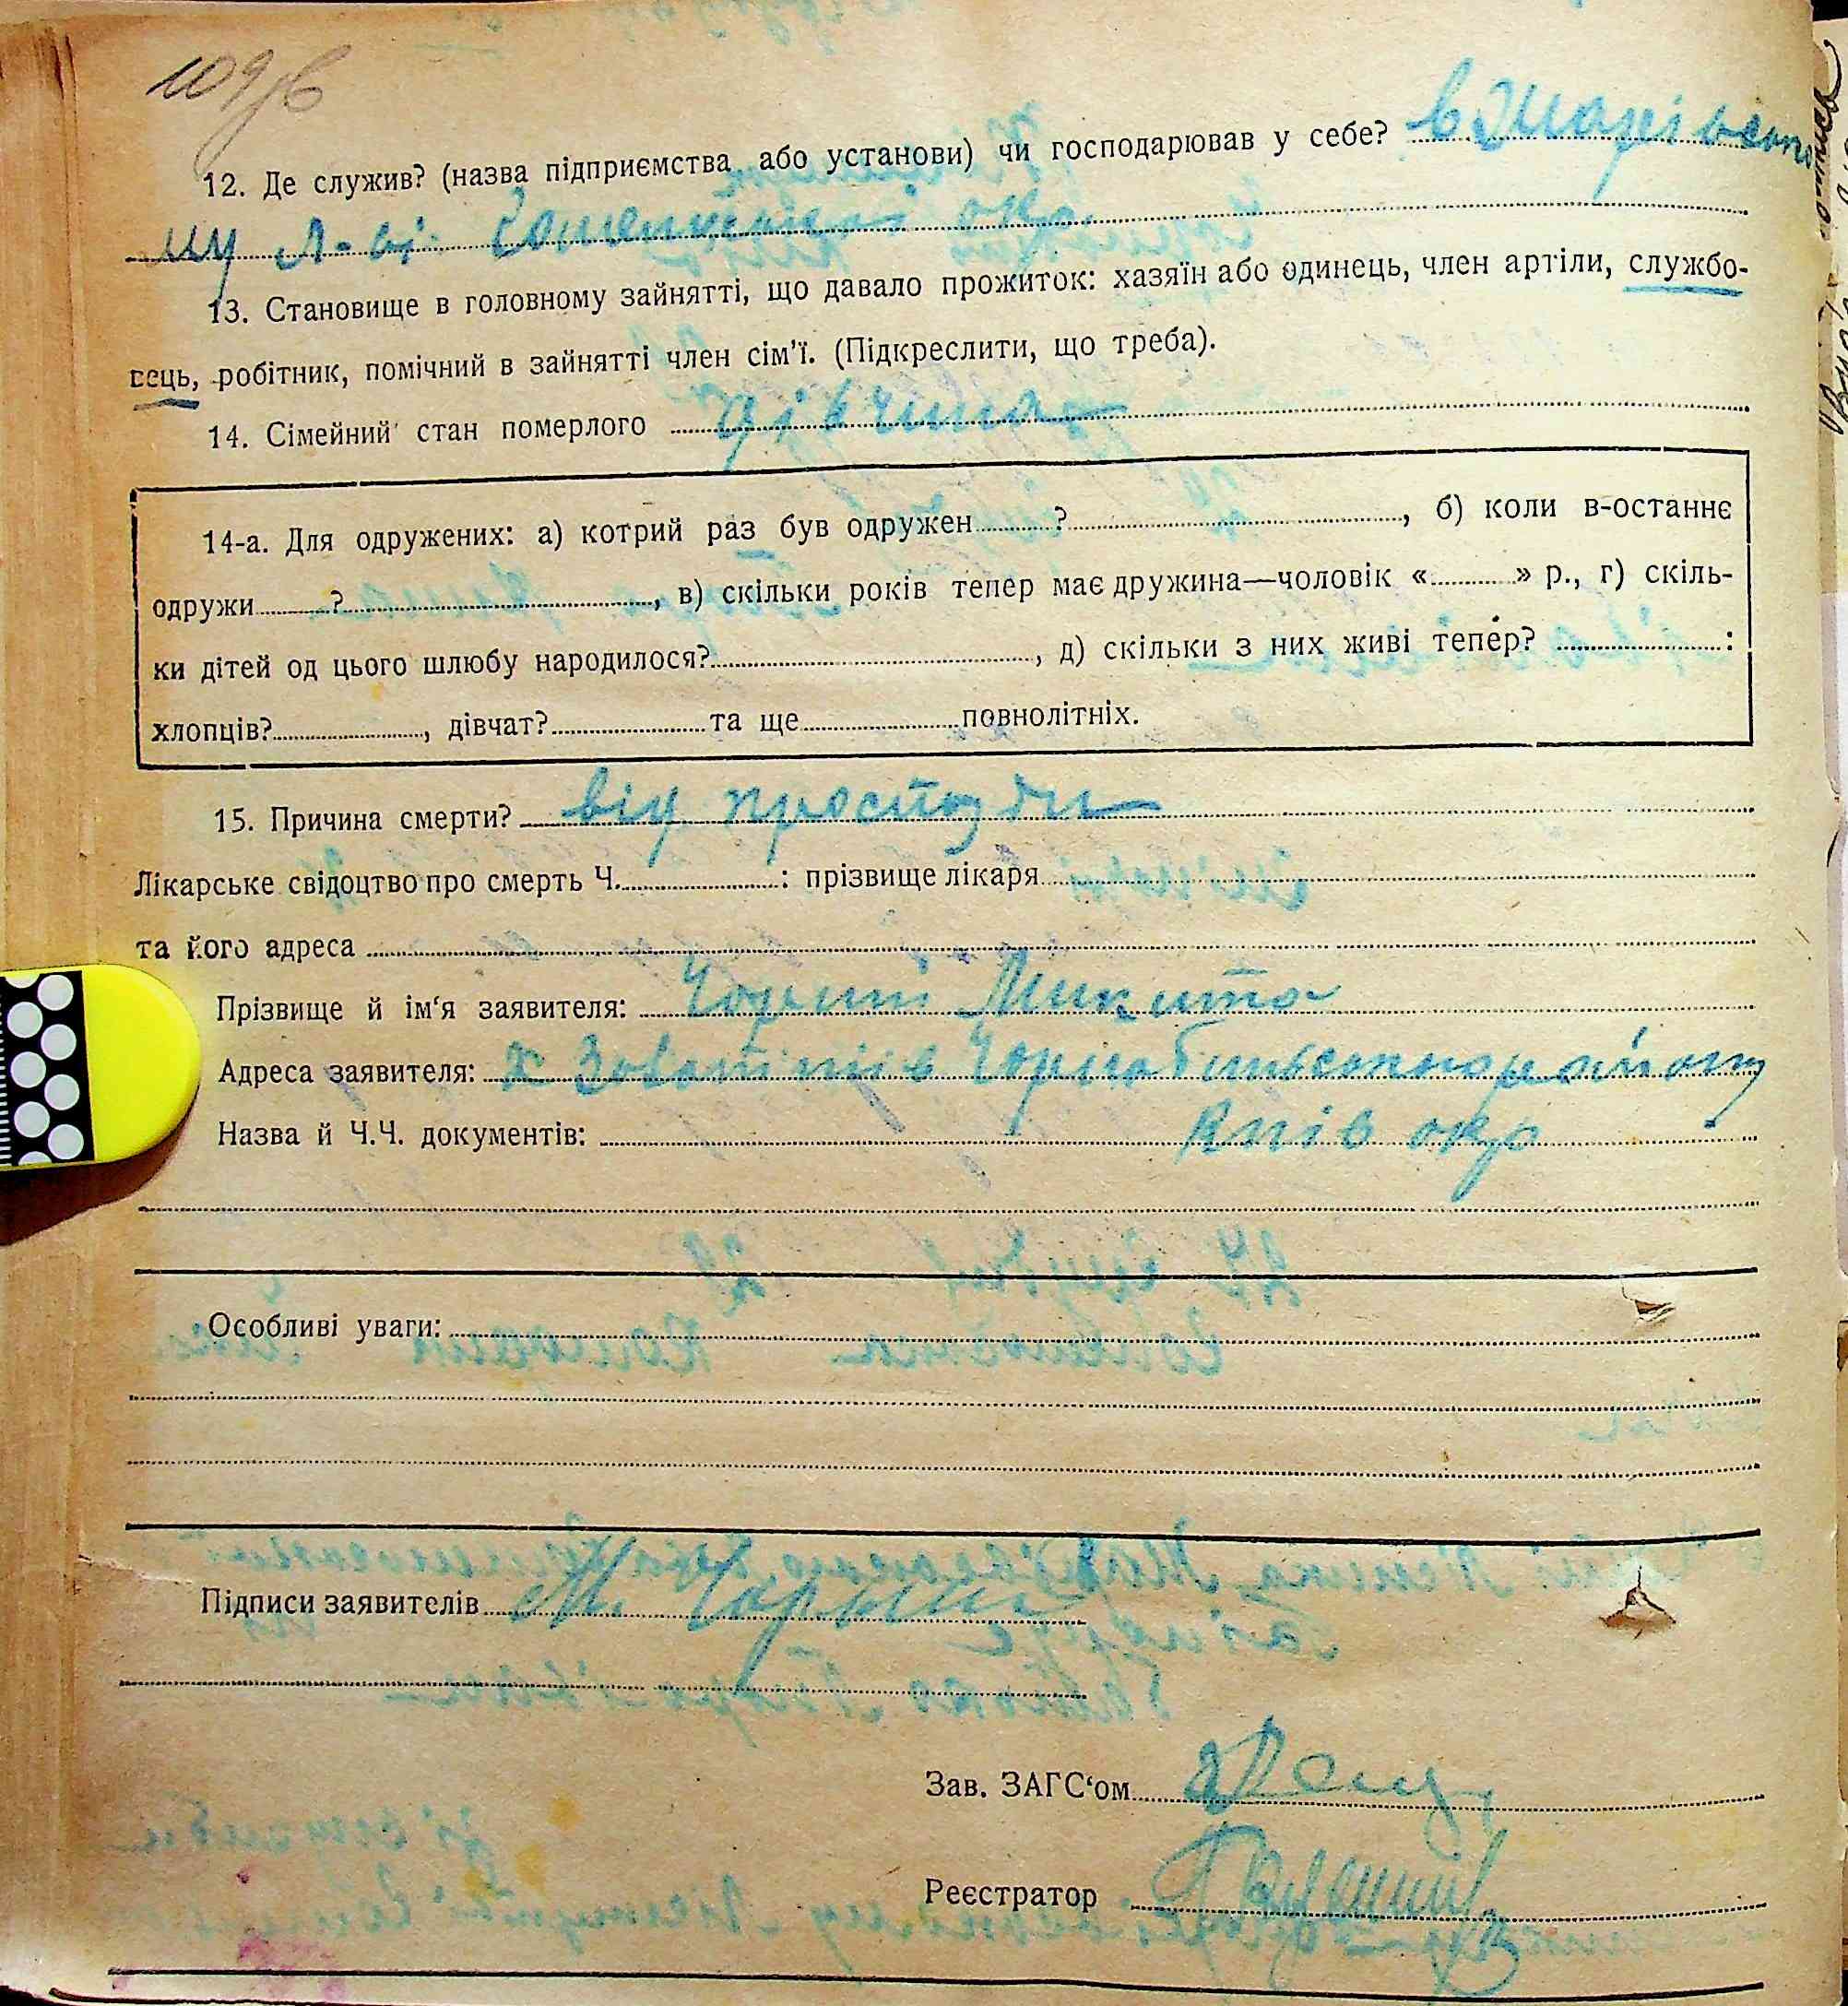 109зв
12. Де служив? (назва підприємства або установи) чи господарював у себе? в
му
13. Становище в головному зайнятті, що давало прожиток: хазяїн або одинець, член артіли, службо-
вець, робітник, помічний в зайнятті член сім'ї. (Підкреслити, що треба).
14. Сімейний стан померлого дівчина
14-а. Для одружених: а) котрий раз був одружен ? , б) коли в-останнє
одружи ? , в) скільки років тепер має дружина—чоловік « » р., г) скіль-
ки дітей од цього шлюбу народилося? , д) скільки з них живі тепер? :
хлопців? , дівчат? та ще повнолітніх.
15. Причина смерти? від простуди
Лікарське свідоцтво про смерть Ч. : прізвище лікаря
та його адреса
Прізвище й ім'я заявителя: Чорний Микита
Адреса заявителя: х
Назва й Ч.Ч. документів: Київ окр
Особливі уваги:
Підписи заявителів М. Чорний
Зав. ЗАГС'ом
Реєстратор